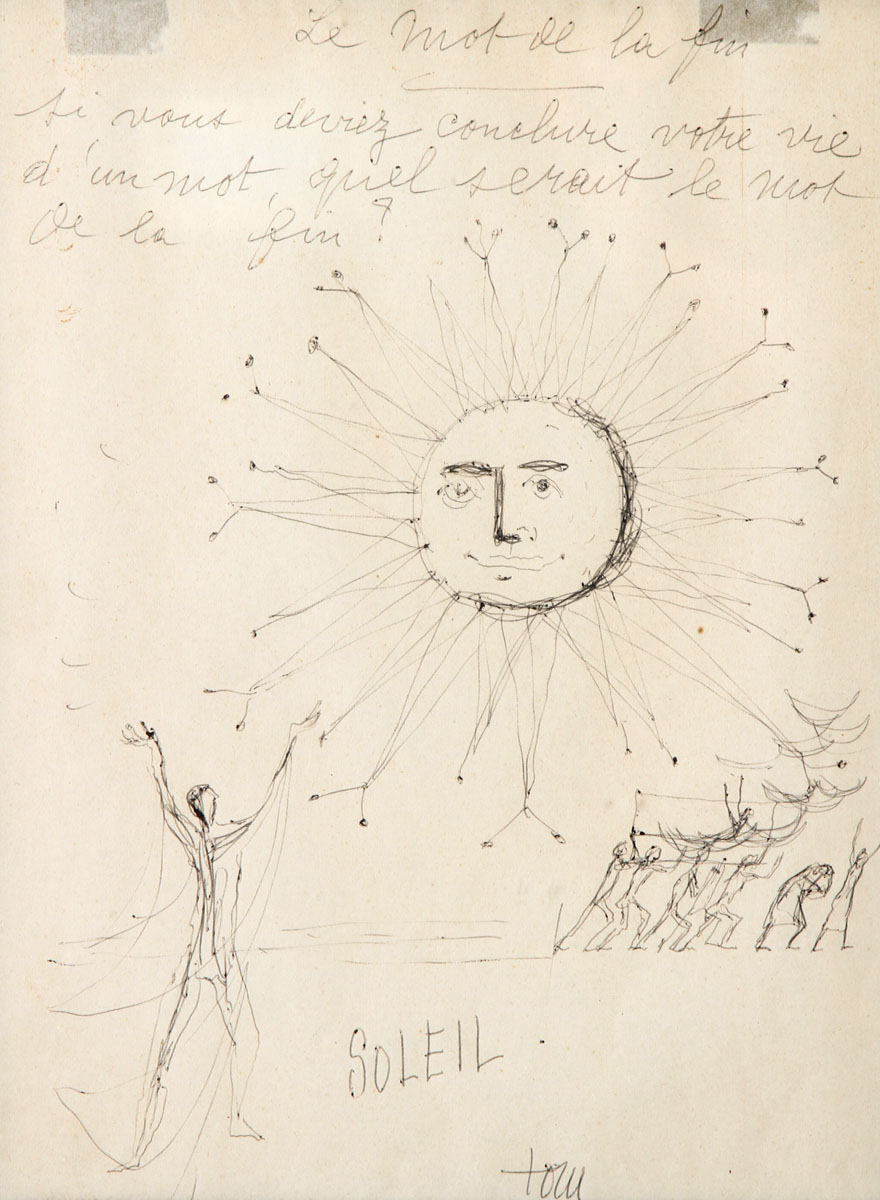 Le mot de la fin
Si vous deviez conclure votre vie
d'un mot, quel serait le mot
de la fin ?
SOLEIL.